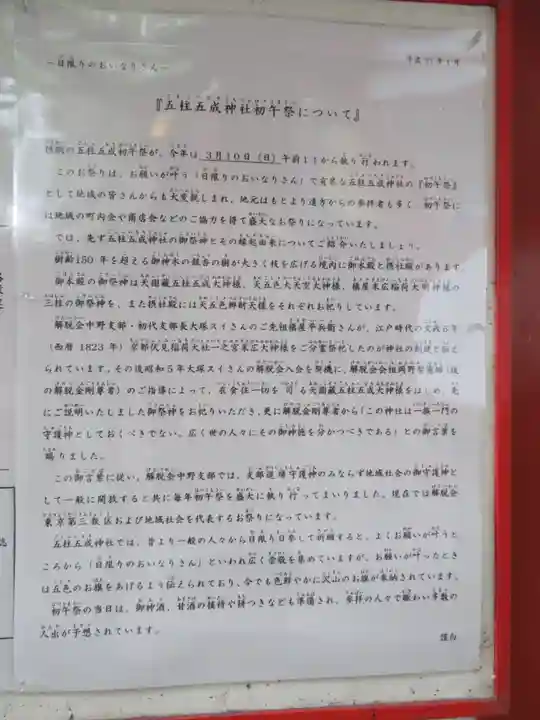 ―日限りのおいなりさん―
『五柱五成神社初午祭について』
恒例の五柱五成初午祭が、今年は 3月10日（日）午前11から執り行われます。
このお祭りは、お願いが叶う（日限りのおいなりさん）で有名な五柱五成神社の『初午祭』
として地域の皆さんからも大変親しまれ、地元はもとより遠方からの参拝者も多く、初午祭に
は地域の町内会や商店会などのご協力を得て盛大なお祭りになっています。
では、先ず五柱五成神社の御祭神とその縁起由来についてご紹介いたしましょう。
樹齢150年を超える御神木の銀杏の樹が大きく枝を広げる境内に御本殿と摂社殿があります
御本殿の御祭神は天園蔵五柱五成大神様、天五色大天宮大神様、橘屋末広稲荷大明神様の
三柱の御祭神を、また摂社殿には天五色辨財天様をそれぞれお祀りしています。
解脱会中野支部・初代支部長大塚スイさんのご先祖橘屋平兵衛さんが、江戸時代の文政6年
（西暦1823年）京都伏見稲荷大社一之宮末広大神様をご分霊祭祀したのが神社の創建と伝え
られています。その後昭和5年大塚スイさんの解脱会入会を契機に、解脱会会祖岡野聖憲師（後
の解脱金剛尊者）のご指導によって、衣食住一切を司る天園蔵五柱五成大神様をはじめ、先
にご説明いたしました御祭神をお祀りいただき、更に解脱金剛尊者から「この神社は一族一門の
守護神としておくべきでない。広く世の人々にその御神徳を分かつべきである」との御言葉を
賜りました。
この御言葉に従い、解脱会中野支部では、支部道場守護神のみならず地域社会の御守護神と
して一般に開放すると共に毎年初午祭を盛大に執り行ってまいりました。現在では解脱会
東京第三教区および地域社会を代表するお祭りになっています。
五柱五成神社では、昔より一般の人々から日限り日参して祈願すると、よくお願いが叶うと
ころから（日限りのおいなりさん）といわれ広く崇敬を集めていますが、お願いが叶ったとき
は五色のお旗をあげるよう伝えられており、今でも色鮮やかに沢山のお旗が奉納されています。
初午祭の当日は、御神酒、甘酒の接待や餅つきなども準備され、参拝の人々で賑わい多数の
人出が予想されています。
謹白